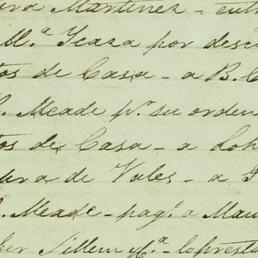 Martinez - entr
M.ª Icaza por desc
tos de Casa - a B. C
Meade p.r su orden
tos de Casa - a Loh
ura de Vales - a
Meade - pag.º a Mau
Sillem y C.ª - lo presta